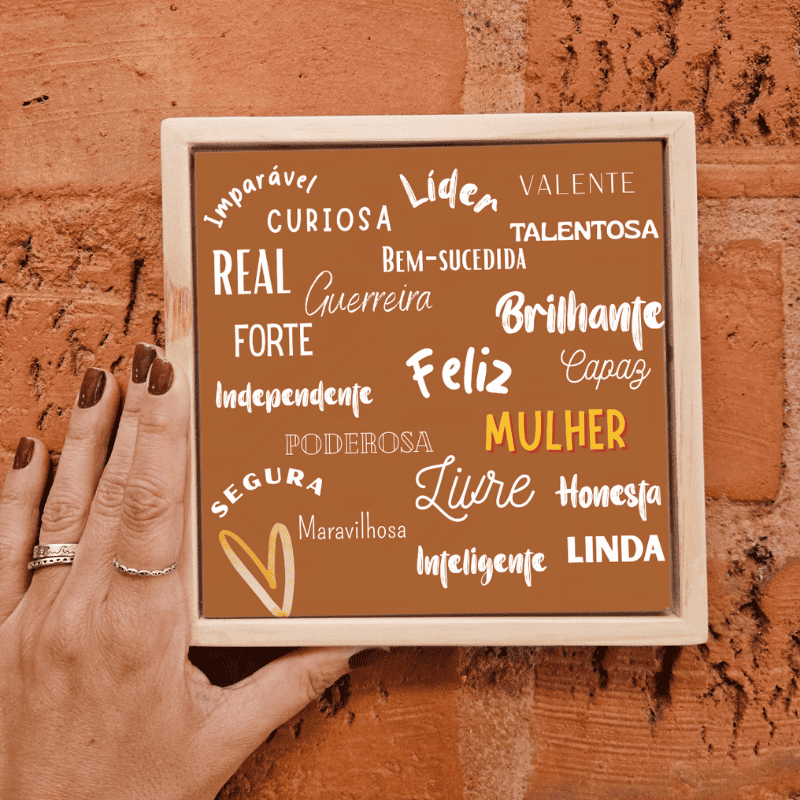 Imparável
Líder
VALENTE
CURIOSA
TALENTOSA
REAL
BEM-SUCEDIDA
Guerreira
Brilhante
FORTE
Feliz
Capaz
Independente
MULHER
PODEROSA
SEGURA
Livre
Honesta
Maravilhosa
Inteligente
LINDA